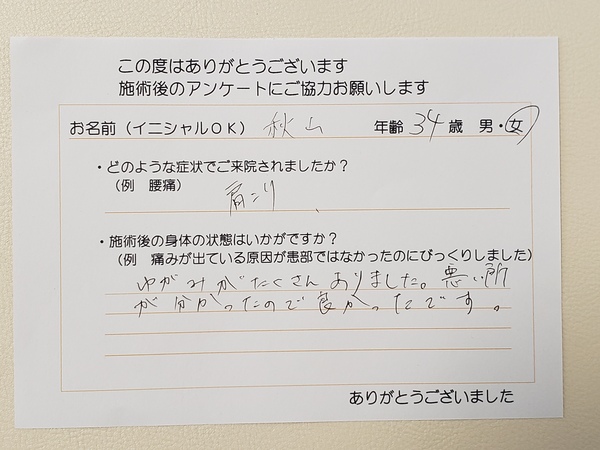 この度はありがとうございます
施術後のアンケートにご協力お願いします
お名前（イニシャルＯＫ） 秋山 年齢 34 歳 男・女
・どのような症状でご来院されましたか？
（例 腰痛）
肩こり
・施術後の身体の状態はいかがですか？
（例 痛みが出ている原因が患部ではなかったのにびっくりしました）
ゆがみがたくさんありました。悪い所
が分かったので良かったです。
ありがとうございました